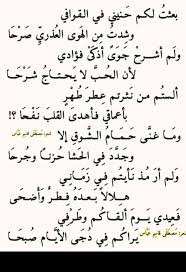 بعثتُ لكم حنيني في القوافي
وشدتُ من الهوى العذريّ صرحا
ولم أشرح جوىً أذكى فؤادي
لأن الحبّ لا يحتاج شرحا
ألستم من نثرتم عطر طُهرٍ
بأعماقي فأهدى القلب نفحا ؟!
وما غنّى حمام الشوق إلا
وجدّد في الحشا حزنا وجرحا
ولم أر مذ نأيتم في زماني
هلالاً بعده فطرٌ وأضحى
فعيدي يوم ألقاكم وطرفي
يراكم في دجى الأيام صبحا
شعر: مصطفى قاسم عباس